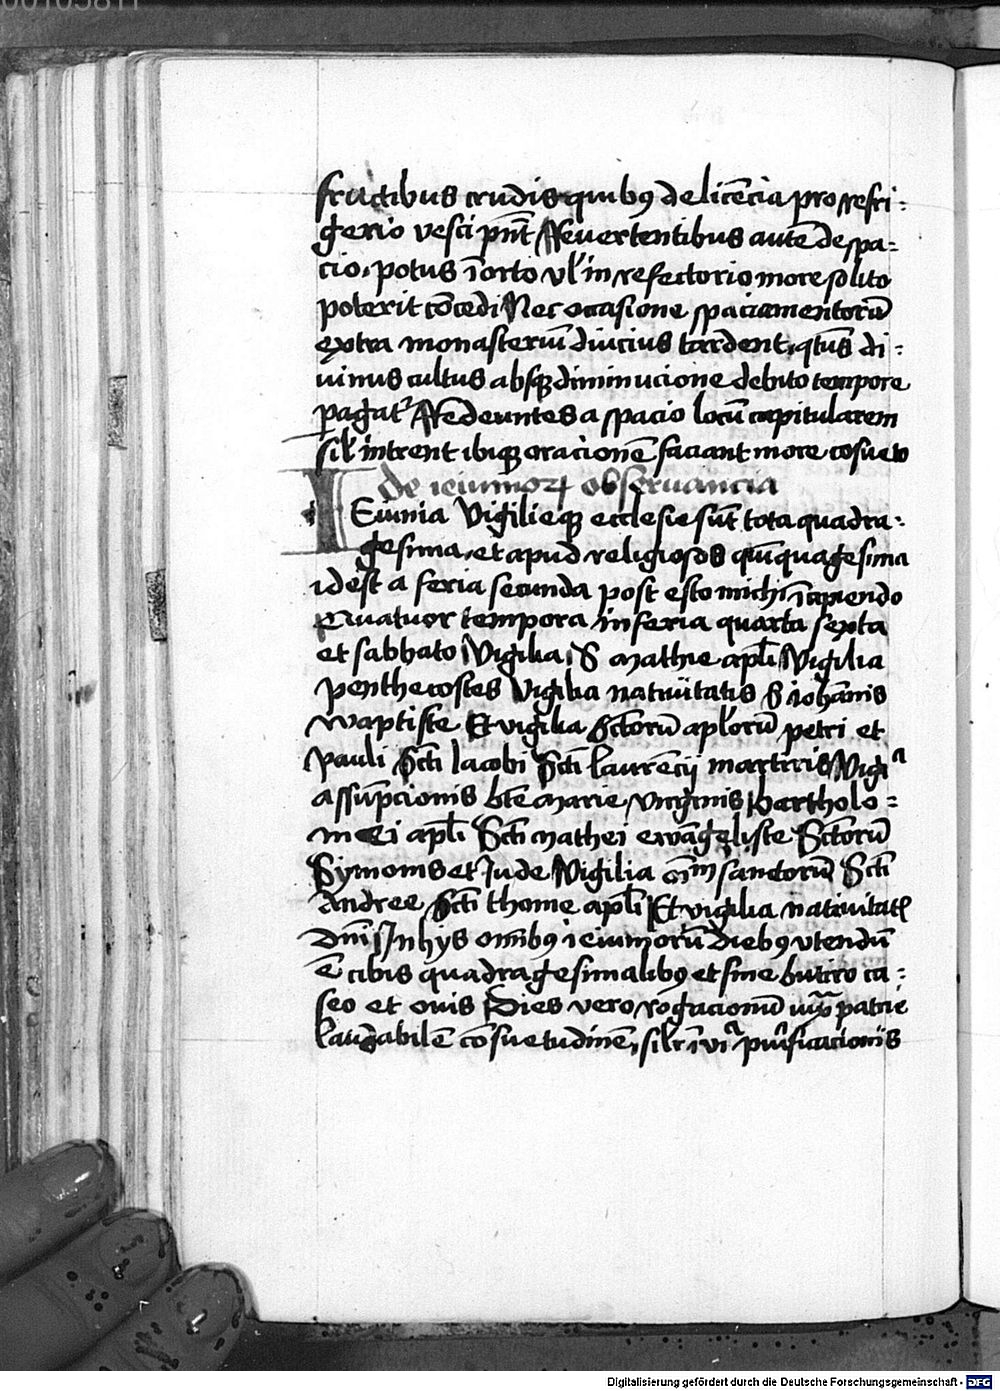 fructibus crudis quibꝯ de licēcia pro refri-
gerio vesci pn̄t Reuertentibus autē de spa-
cio potus ī orto vl' in refectorio more solito
poterit cōcedi Nec occasione spaciamentorū
extra monasteriū diucius tardent qtūs di-
uinus cultus absqꝫ diminucione debito tempore
pagat' Redeuntes a spacio locū capitularem
sil' intrent ibiqꝫ oracionē faciant more cōsueto
de ieiunioꝝ obseruancia
IEiunia Vigilieqꝫ ecclesie sūt tota quadra-
gesima et apud religiosos qūiquagesima
idest a feria secunda post esto michi īcipiendo
Quatuor tempora in feria quarta sexta
et sabbato Vigilia S mathie apl'i Vigilia
penthecostes Vigilia natiuitatis S iohānis
waptiste Et vigilia Sctorū apl'orū petri et
pauli Scti Iacobi Scti laurēcij martiris Vigia
assūpcionis bt̄e marie virginis Bartholo-
mei apl'i Scti mathei ewāgeliste Sctorū
Symonis et Iude Vigilia oīm sanctorū Scti
Andree Scti thome apl'i Et vigilia natiuitatꝭ
Dn̄i In hijs omībꝯ ieiuniorū diebꝯ vtendū
ē cibis quadragesimalibꝯ et sine butiro ca-
seo et ouis Dies vero rogacionū patrie
laudabilē cōsuetudinē, silr ī vīa pūrificacionis
Digitalisierung gefördert durch die Deutsche Forschungsgemeinschaft - DFG